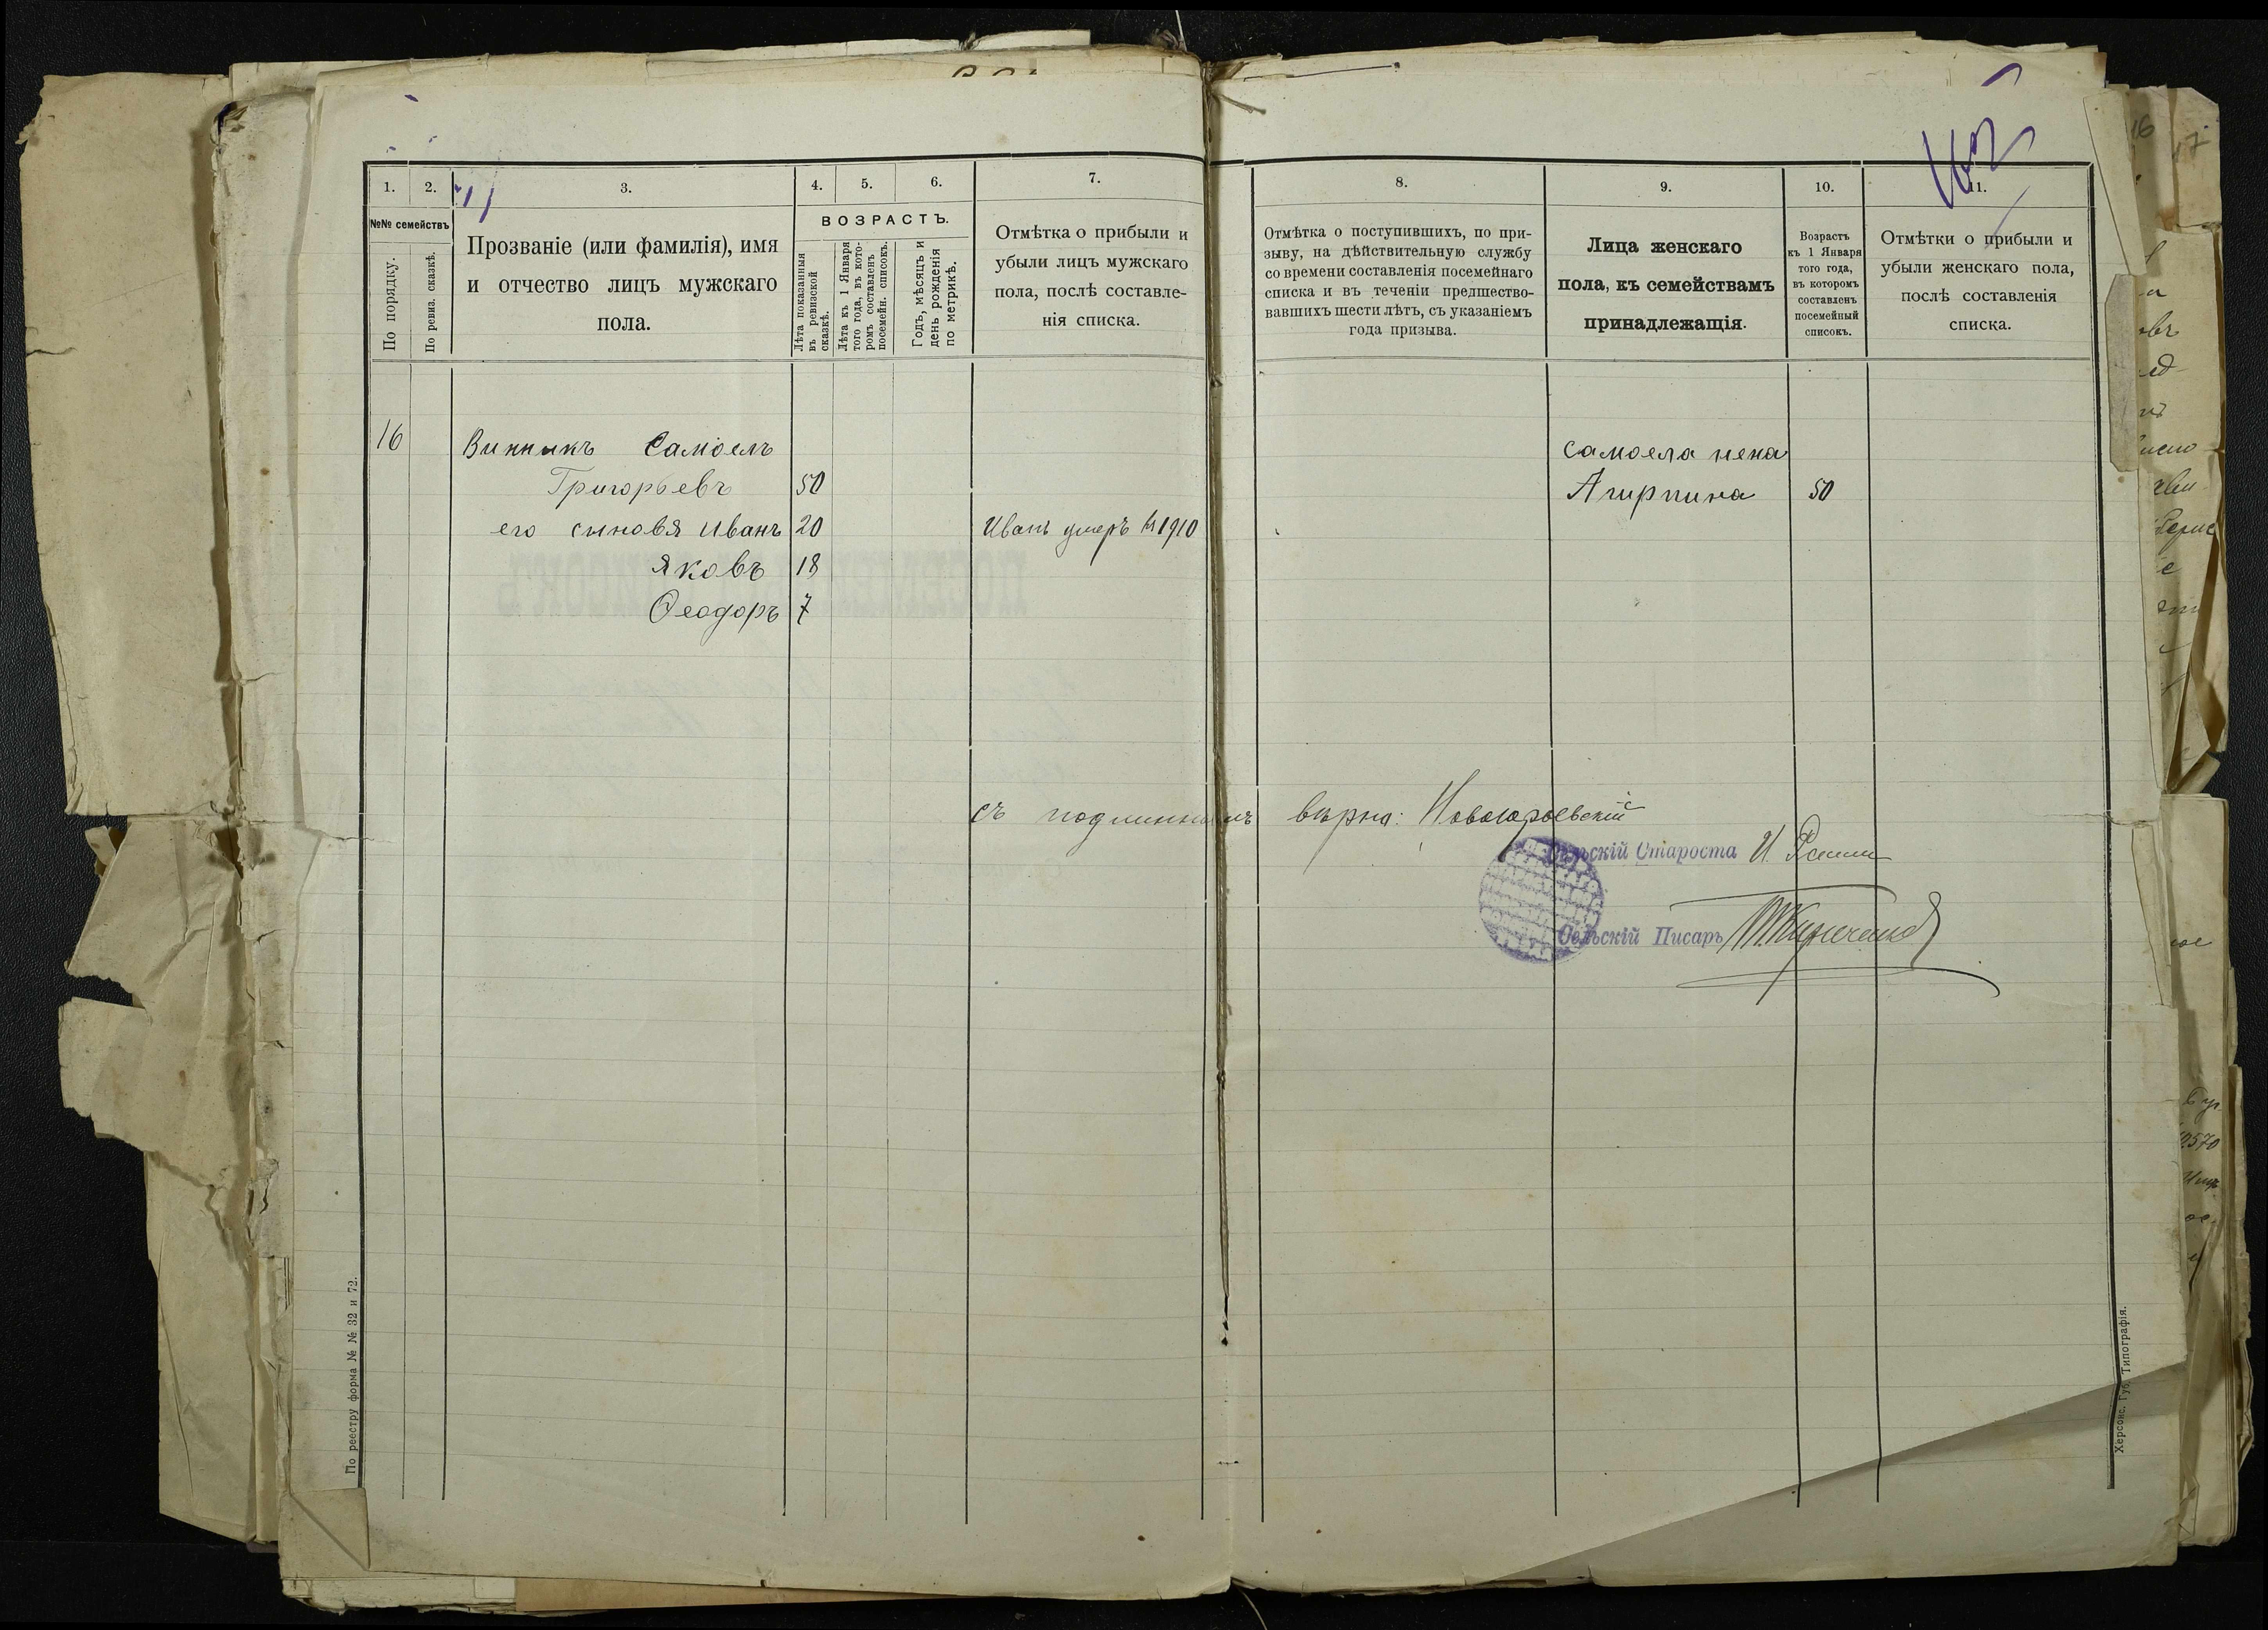 1.
2.
3.
4.
5.
6.
7.
№№ семействъ
По порядку.
По ревиз. сказкѣ.
Прозваніе (или фамилія), имя
и отчество лицъ мужскаго
пола.
ВОЗРАСТЪ.
Лѣта показанныя
въ ревизской
сказкѣ.
Лѣта къ 1 Января
того года, въ кото-
ромъ составленъ
посемейн. списокъ.
Годъ, мѣсяцъ и
день рожденія
по метрикѣ.
Отмѣтка о прибыли и
убыли лицъ мужскаго
пола, послѣ составле-
нія списка.
16
Винникъ Самоелъ
Григорьевъ 50
его синовя Иванъ 20
Иванъ умеръ въ 1910
Яковъ 18
Ѳеодоръ 7
По реестру форма № № 32 и 72.
8.
9.
10.
11.
Отмѣтка о поступившихъ, по при-
зыву, на дѣйствительную службу
со времени составленія посемейнаго
списка и въ теченіи предшество-
вавшихъ шести лѣтъ, съ указаніемъ
года призыва.
Лица женскаго
пола, къ семействамъ
принадлежащія.
Возрастъ
къ 1 Января
того года,
въ которомъ
составленъ
посемейный
списокъ.
Отмѣтки о прибыли и
убыли женскаго пола,
послѣ составленія
списка.
Самоела жена
Агирпина 50
съ подлиннымъ вѣрно: Новоюрьевскій
Сельскій Староста И.
Сельскій Писарь
Херсонс. Губ. Типографія.